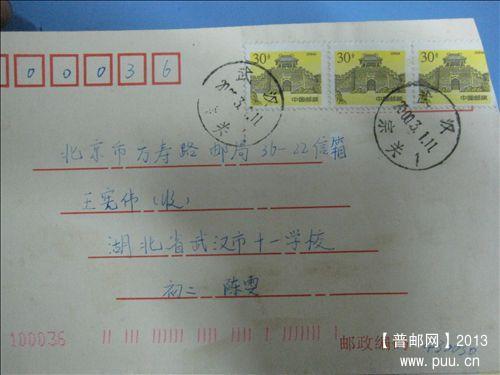 30分 30分 30分
中国邮政 中国邮政 中国邮政
00036
武汉
2000.3.1.11
宗关
武汉
2000.3.1.11
宗关
北京市万寿路邮局36-22信箱
王宪伟（收）
湖北省武汉市十一学校
初二 陈雯
100036
邮政编码
【普邮网】2013
www.puu.cn